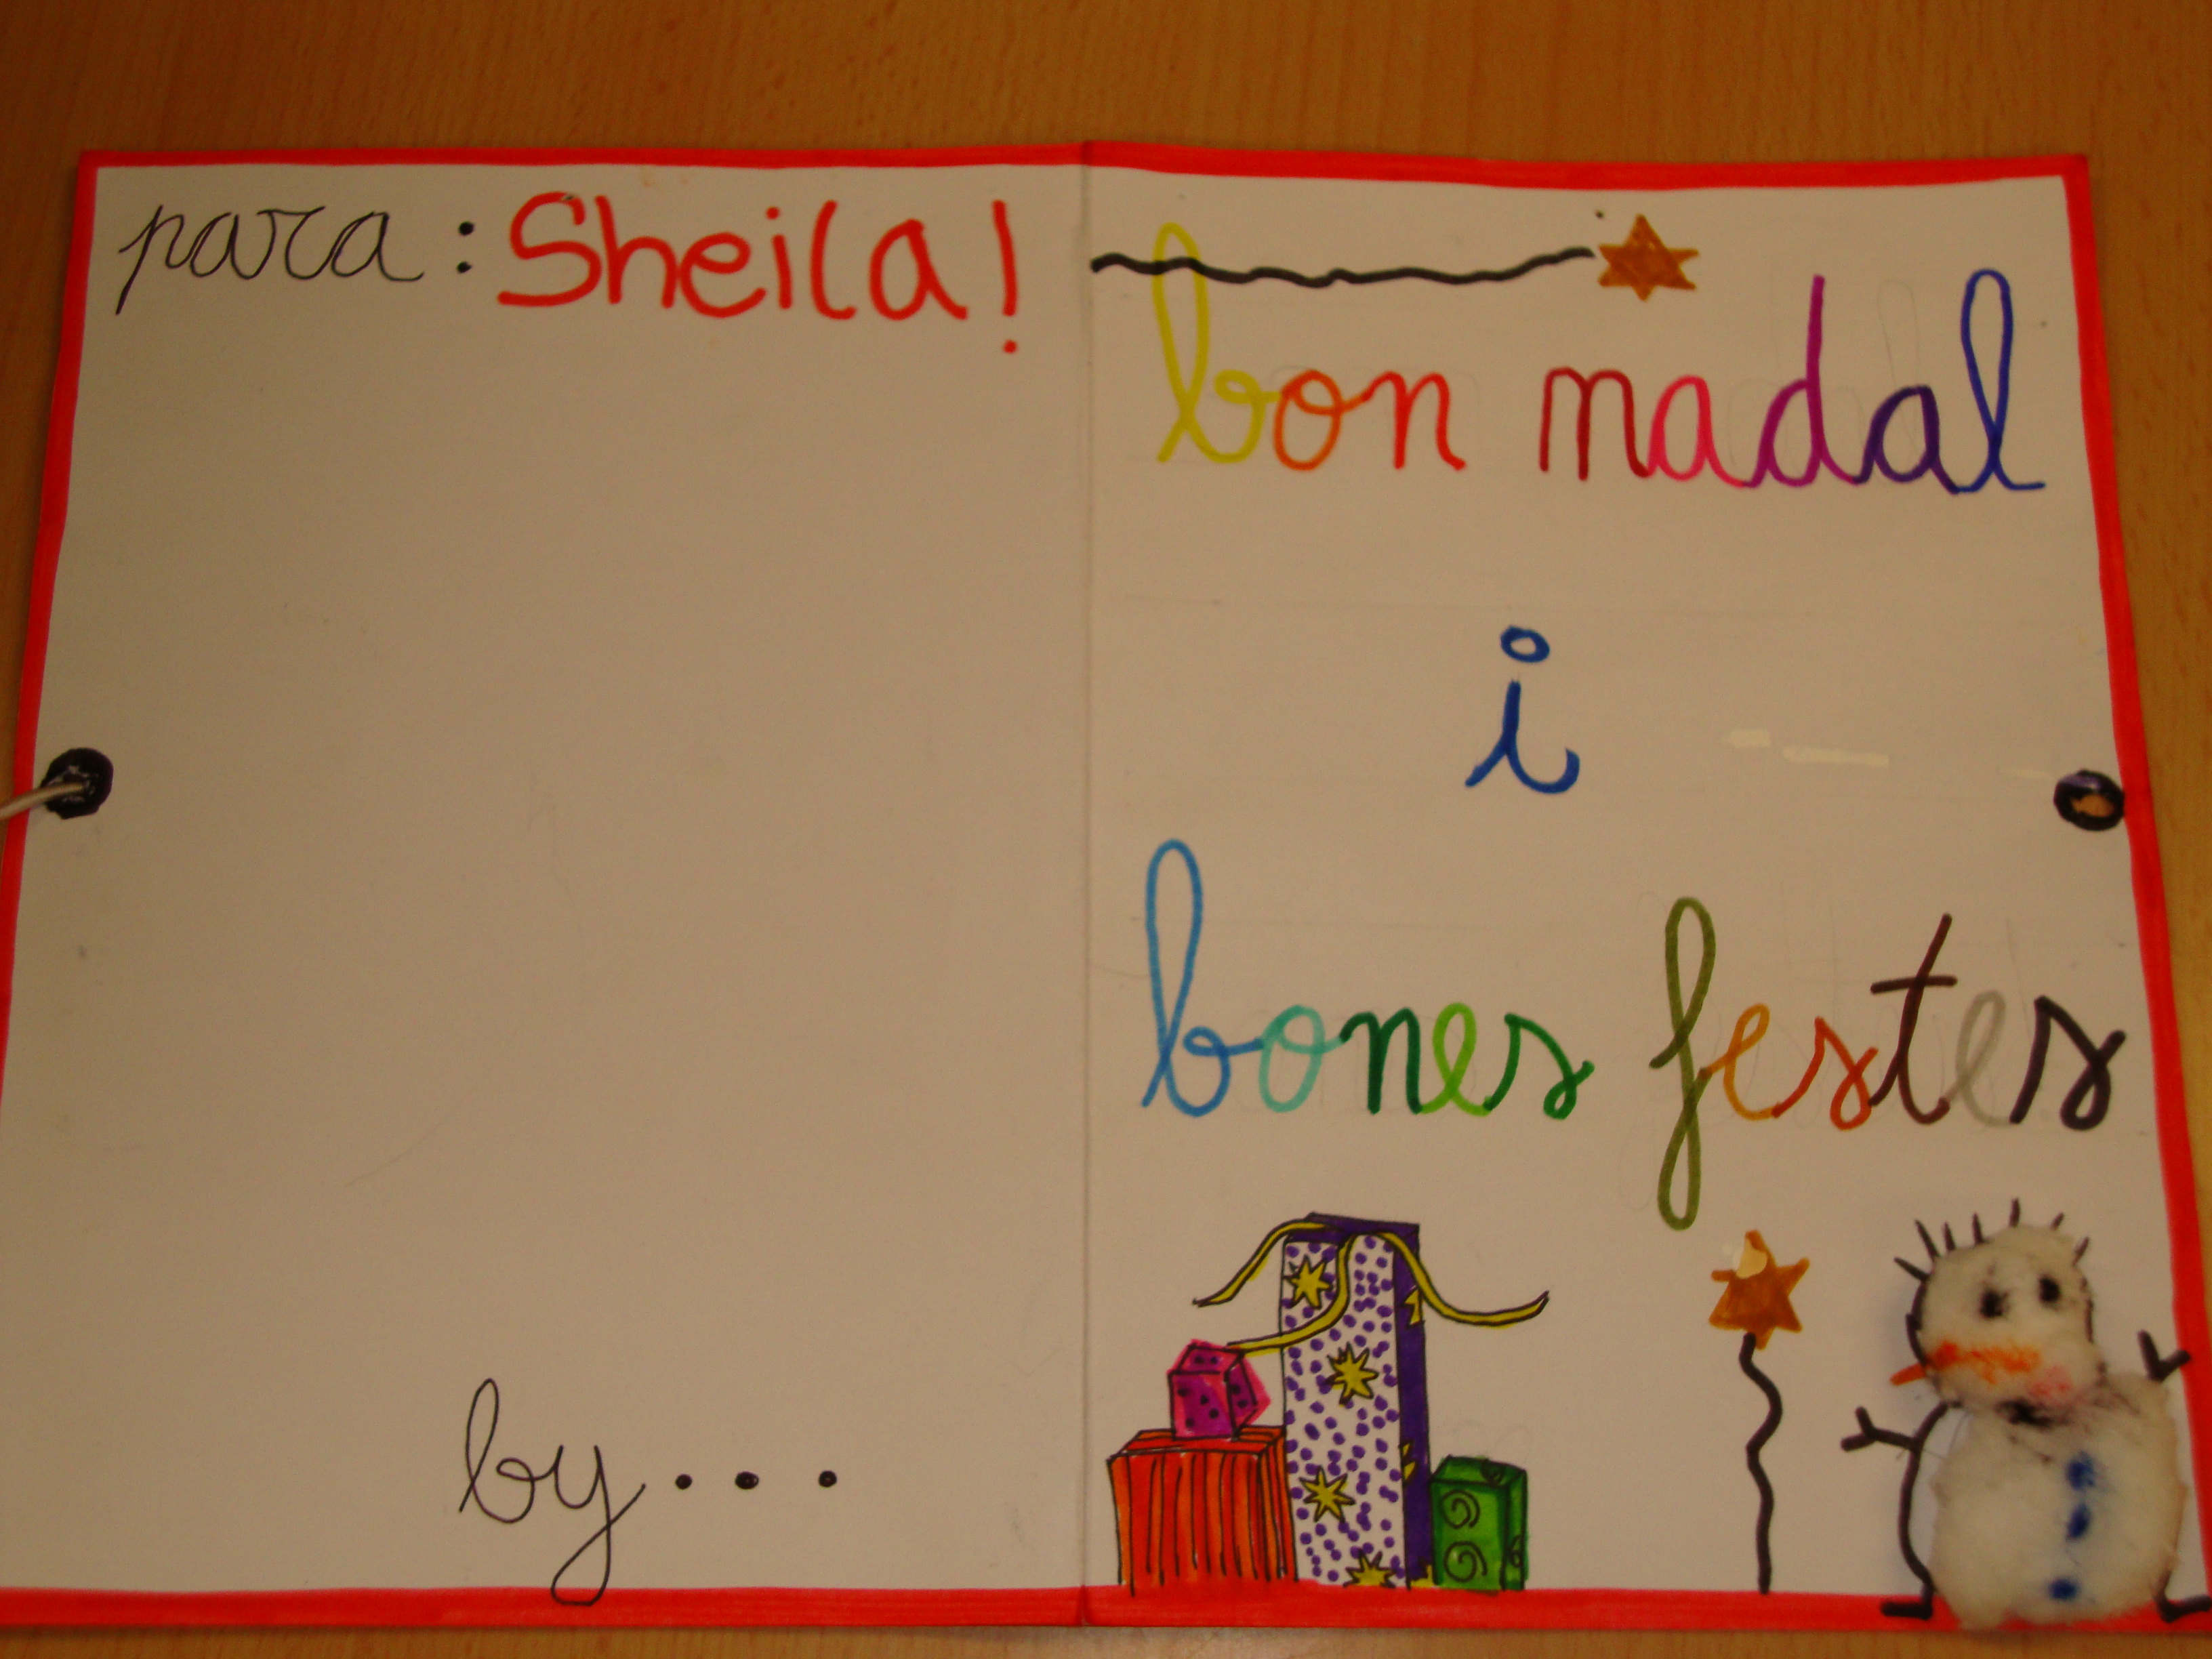 para: Sheila!
by...
bon nadal
i
bones festes